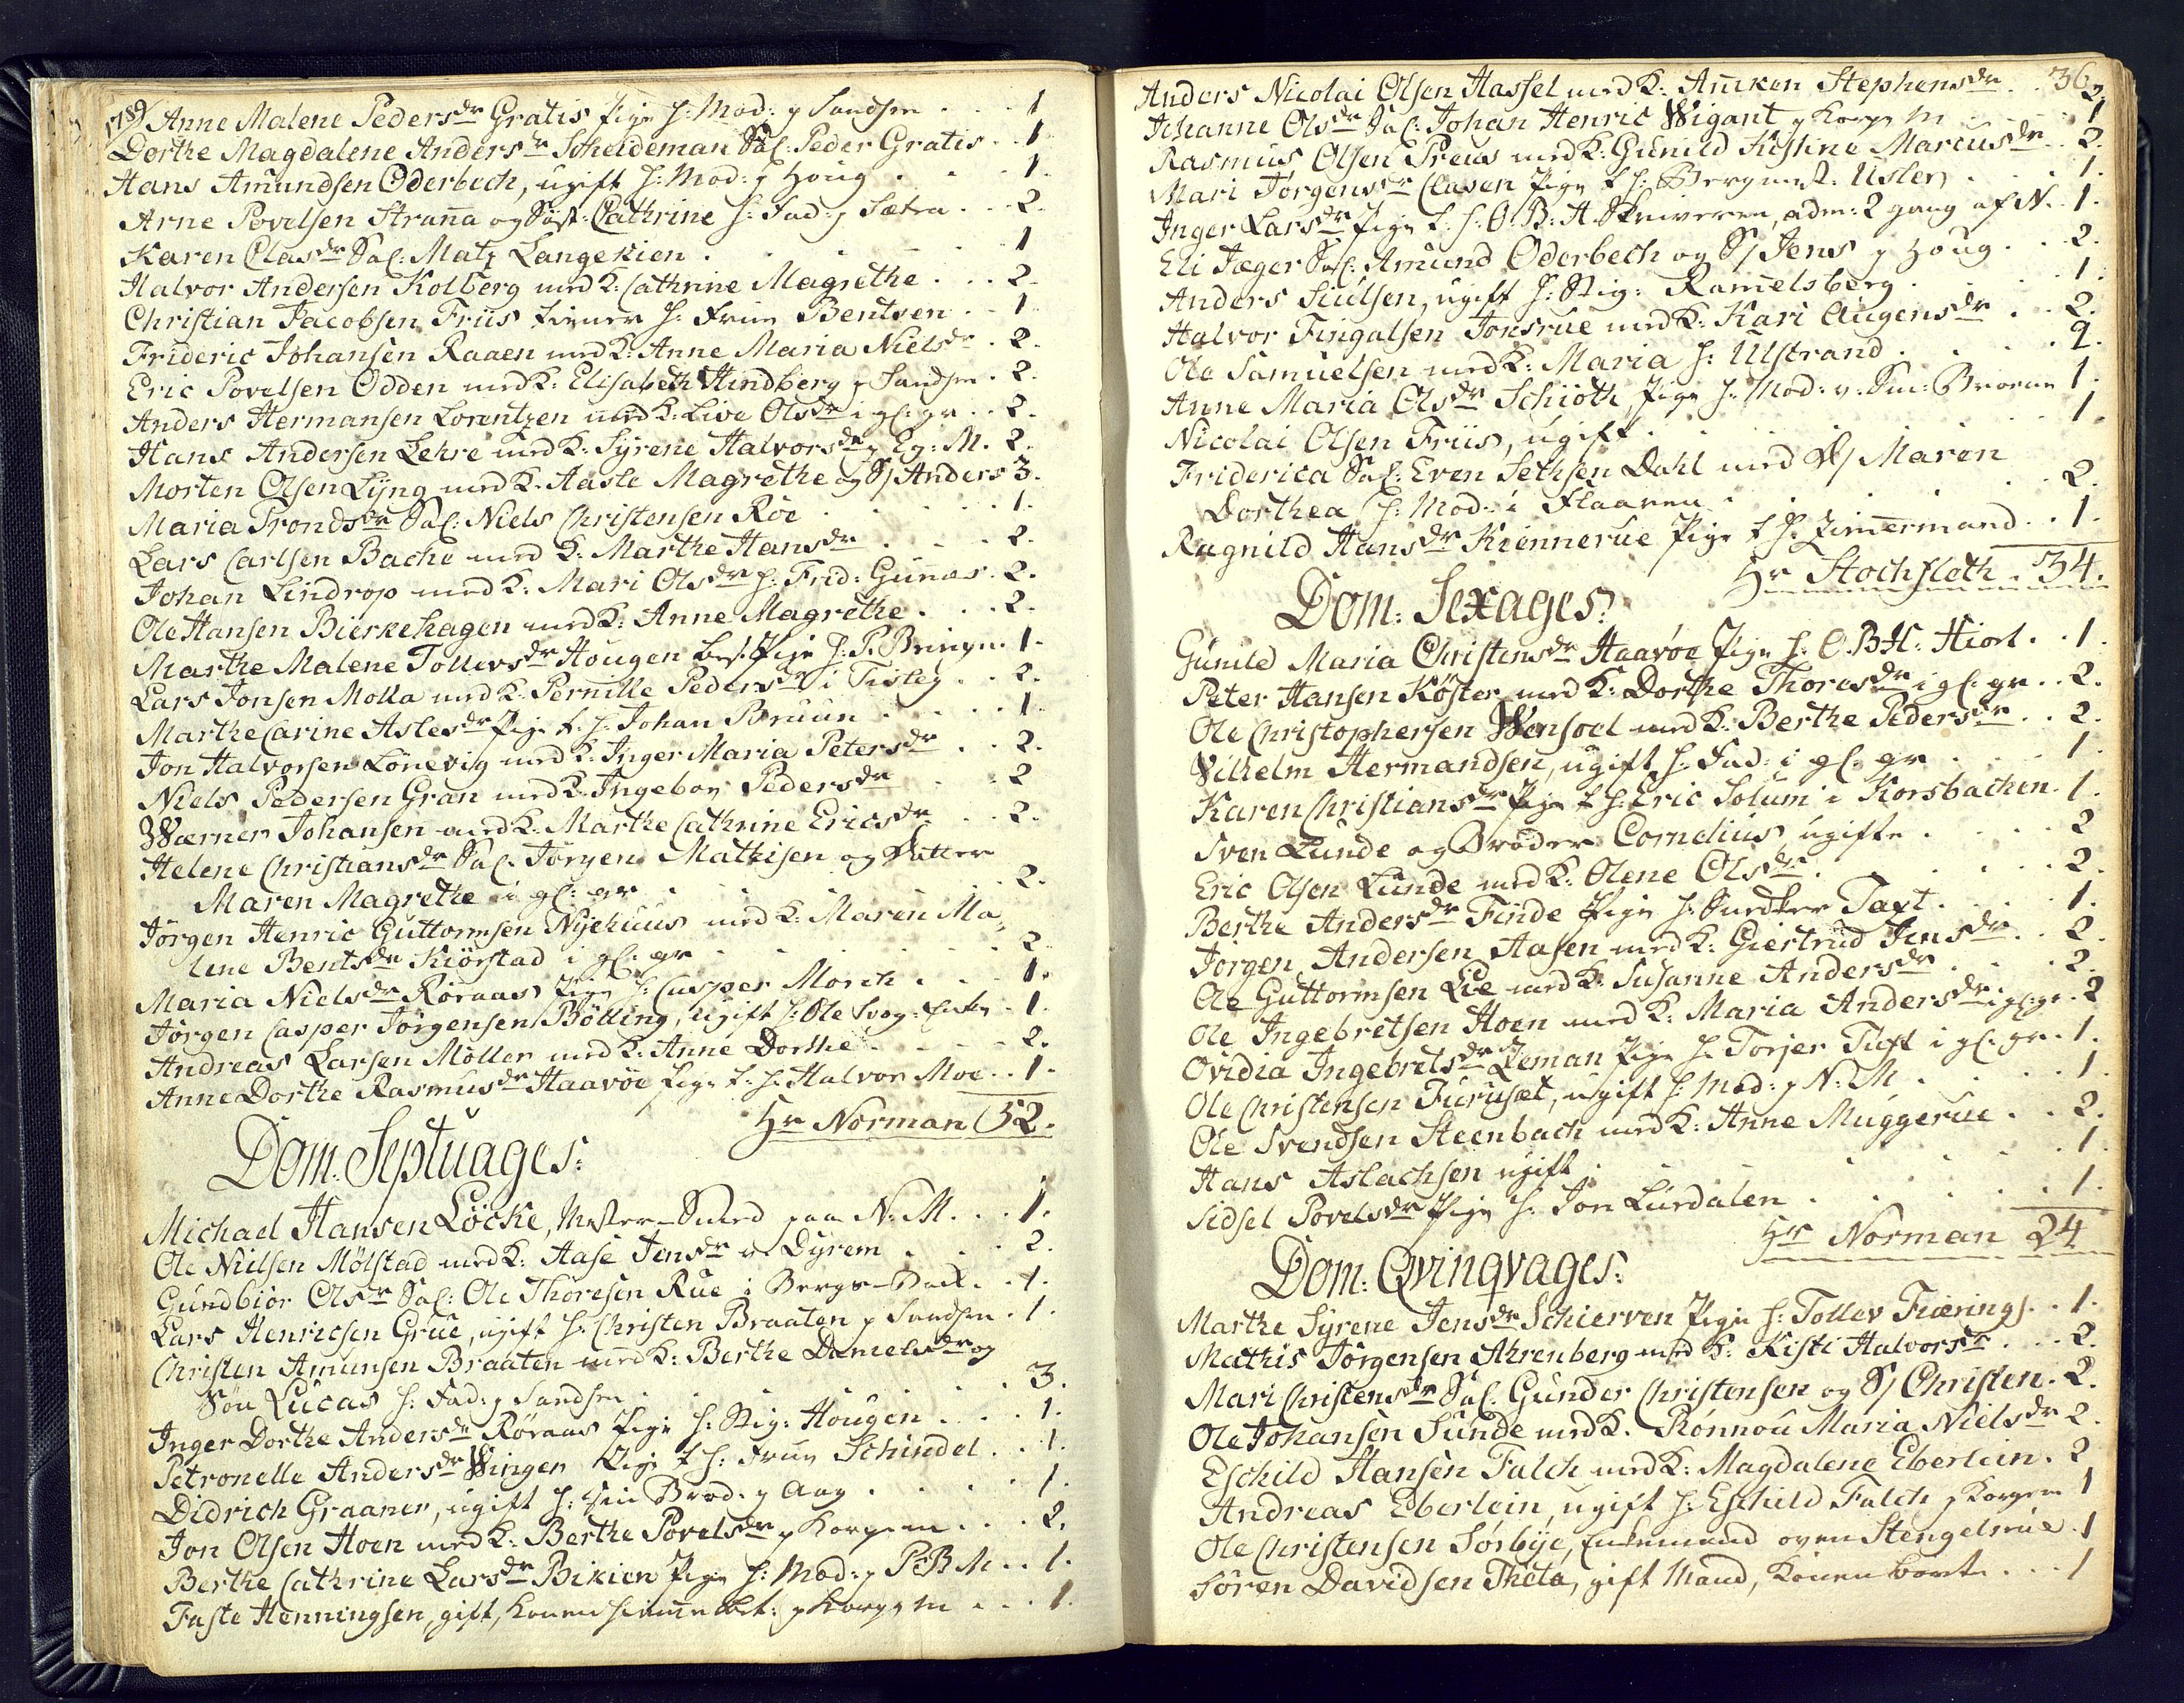 1789/ Anne Malene Peders dr Gratis Pige h: Mod: p Sandsm . . . 1
Dorthe Magdalene Anders dr Scheideman Sal: Peder Gratis . . 1
Hans Amundsen Oderbech, ugift h: Mod: p Houg . . . 1.
Arne Povelsen Stranna og Søst: Cathrine h: Fad: p Sætra . . . 2.
Karen Olas dr Sal: Matz Langekien . . . 1
Halvor Andersen Kolberg med K: Cathrine Magrethe . . . 2.
Christian Jacobsen Friis tiener h: Frue Bentsen . . 1
Frideric Johansen Raaen med K: Anne Maria Niels dr . 2.
Eric Povelsen Odden med K: Elisabeth Hindberg p Sandsm . 2.
Anders Hermansen Lorentzen med K: Live Ols dr i gl: gr . . 2.
Hans Andersen Lehre med K: Syrene Halvors dr p Eg: M. 2.
Morten Olsen Lyng med K. Aasle Magrethe og S/ Anders 3.
Maria Tronds dr Sal: Niels Christensen Roe . . . 1.
Lars Carlsen Bache med K: Marthe Hans dr . . . 2.
Johan Lindrop med K: Mari Ols dr h: Frid: Gunnes . 2.
Ole Hansen Bierkehagen med K: Anne Magrethe . . . 2.
Marthe Malene Tollevs dr Hougen bes: Pige h: P. Bringer . 1.
Lars Jonsen Molla med K. Pernille Peders dr i Tisleg . . 2.
Marthe Carine Asles dr Pige t. h. Johan Bruun . . . 1.
Jon Halvorsen Lønevig med K. Inger Maria Peters dr . . 2.
Niels Pedersen Gran med K. Ingebor Peders dr . . 2
Wærner Johansen med K. Marthe Cathrine Erics dr . . 2.
Helene Christians dr Sal. Jørgen Mathisen og Datter
Maren Magrethe i gl: gr . . . 2.
Jørgen Henric Guttormsen Nyehuus med K. Maren Ma„
lene Bents dr Kiørstad i gl: gr . . . 2
Maria Niels dr Røraas Pige h: Casper Morch . . . 1.
Jørgen Casper Jørgensen Bølling, ugift h: Ole Svog: Enke . 1.
Andreas Larsen Møller med K: Anne Dorthe . . . 2.
Anne Dorthe Rasmus dr Haavøe Pige t. h. Halvor Moe . . 1.
Hr Norman 52.
Dom: Septuages:
Michael Hansen Løcke, Mester-Smed paa N: M. . . 1.
Ole Nielsen Mølstad med K: Aase Jens dr v. Dyrem . . . 2.
Gundbior Ols dr Sal: Ole Thoresen Rue i Bergs-Bak . . 1.
Lars Henricsen Grue, ugift h: Christen Braaten p Sandsm . 1.
Christen Amunsen Braaten med K: Berthe Daniels dr og
Søn Lucas h: Fad: p Sandsm . . . 3.
Inger Dorthe Anders dr Røraas Pige h: Stig: Hougen . . . 1.
Petronelle Anders dr Winger Pige t h: Frue Schindel . . 1.
Didrich Graaner, ugift h: sin Brod: p Aag . . . 1.
Jon Olsen Hoen med K: Berthe Povels dr p Korgem . . . 2.
Berthe Cathrine Lars dr Bikien Pige h: Mod: p P:B: M. . . 1.
Faste Henningsen, gift, Konen hiemme bet: p Korgem . . . 1.
36
Anders Nicolai Olsen Hassel med K: Anniken Stephens dr . . 2
Johanne Ols dr Sal: Johan Henric Wigant p Korgem . . . 1
Rasmus Olsen Preus med K: Gunild Kistine Marcus dr . . 2.
Mari Jørgens dr Clasen Pige t h: Bergmest: Usler . . . 1.
Inger Lars dr Pige t. h. O. B: A. Skriveren, adm: 2 gang af N. . 1.
Eli Jæger Sal: Amund Oderbech og S/ Jens p Houg . . . 2.
Anders Juulsen, ugift h: Stig: Ramelsberg . . . 1.
Halvor Fingalsen Jonsrue med K: Kari Augens dr . . 2.
Ole Samuelsen med K: Maria h: Ulstrand . . . 2.
Anne Maria Ols dr Schiøth, Pige h: Mod: v. Sm: Broen 1.
Nicolai Olsen Friis, ugift . . . 1
Friderica Sal: Even Sethsen Dahl med D/ Maren
Dorthea h: Mod: i Flaaren . . . 2.
Ragnild Hans dr Kiennerue Pige t h: Zimmermand . . 1.
Hr Stochfleth . 34.
Dom: Sexages:
Gunild Maria Christens dr Haavøe Pige h: O. B.H: Hiort . . 1.
Peter Hansen Køster med K: Dorthe Thores dr i gl: gr . . 2.
Ole Christophersen Wensoel med K: Berthe Peders dr . . 2.
Wilhelm Hermandsen, ugift h: Fad: i gl: gr . . . 1.
Karen Christians dr Pige t h: Eric Solum i Korsbachen . 1.
Sven Lunde og Broder Cornelius, ugifte . . . 2
Eric Olsen Lunde med K: Olene Ols dr . . . 2.
Berthe Anders dr Finde Pige h: Snedker Taxt . . . 1.
Jørgen Andersen Aasen med K: Giertrud Jens dr . . 2.
Ole Guttormsen Lie med K: Susanne Anders dr . . . 2.
Ole Ingebretsen Hoen med K: Maria Anders dr i gl: gr . 2
Ovidia Ingebrets dr Zeman Pige h: Torjer Tuft i gl: gr . 1.
Ole Christensen Furuset, ugift h: Mod: p N: M . . . 1.
Ole Svendsen Steenbach med K: Anne Muggerue . . 2.
Hans Aslachsen ugift . . . 1.
Sidsel Povels dr Pige h: Jon Lurdalen . . . 1.
Hr Norman 24
Dom: Qvinqvages:
Marthe Syrene Jens dr Schierven Pige h: Tollev Fiærings . . 1.
Mathis Jørgensen Ahrenberg med K: Kisti Halvors dr . . . 2.
Mari Christens dr Sal: Gunder Christensen og S/ Christen . 2.
Ole Johansen Sunde med K. Rønnou Maria Niels dr 2.
Eschild Hansen Falch med K: Magdalene Eberlein . 2
Andreas Eberlein, ugift h: Eschild Falch p Korgem 1
Ole Christensen Sørbye, Enkemand oven Stengelsrue . 1
Søren Davidsen Theta, gift Mand, Konen borte . . . 1